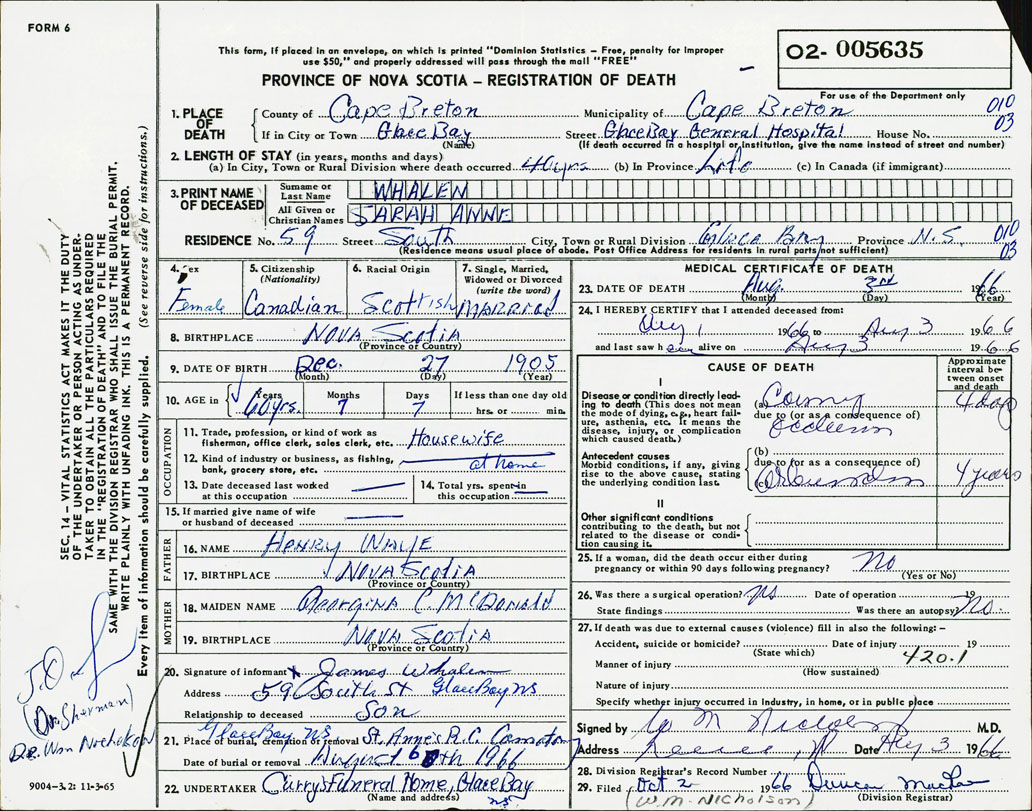 FORM 6
This form, if placed in an envelope, on which is printed "Dominion Statistics – Free, penalty for improper
use $50," and properly addressed will pass through the mail "FREE"
PROVINCE OF NOVA SCOTIA – REGISTRATION OF DEATH
02- 005635
For use of the Department only
010
03
1. PLACE OF DEATH
County of Cape Breton Municipality of Cape Breton
If in City or Town Glace Bay Street Glace Bay General Hospital House No.
(Name) (If death occurred in a hospital or institution, give the name instead of street and number)
2. LENGTH OF STAY (in years, months and days)
(a) In City, Town or Rural Division where death occurred 40 yrs. (b) In Province Life (c) In Canada (if immigrant)
3. PRINT NAME OF DECEASED
Surname or Last Name WHALEN
All Given or Christian Names SARAH ANNE
RESIDENCE No. 59 Street South City, Town or Rural Division Glace Bay Province N.S.
(Residence means usual place of abode. Post Office Address for residents in rural parts not sufficient)
010
03
4. Sex Female
5. Citizenship (Nationality) Canadian
6. Racial Origin Scottish
7. Single, Married, Widowed or Divorced (write the word) MARRIED
8. BIRTHPLACE NOVA SCOTIA
(Province or Country)
9. DATE OF BIRTH Dec. 27 1905
(Month) (Day) (Year)
10. AGE in Years 60 yrs. Months 7 Days 7 If less than one day old hrs. or min.
OCCUPATION
11. Trade, profession, or kind of work as fisherman, office clerk, sales clerk, etc. Housewife
12. Kind of industry or business, as fishing, bank, grocery store, etc. at home
13. Date deceased last worked at this occupation
14. Total yrs. spent in this occupation
15. If married give name of wife or husband of deceased
FATHER
16. NAME HENRY
17. BIRTHPLACE NOVA SCOTIA
(Province or Country)
MOTHER
18. MAIDEN NAME Georgina C. McDonald
19. BIRTHPLACE NOVA SCOTIA
(Province or Country)
20. Signature of informant X James Whalen
Address 59 South St Glace Bay NS
Relationship to deceased Son
Glace Bay NS
21. Place of burial, cremation or removal St. Anne's R.C.
Date of burial or removal August 6th 1966
22. UNDERTAKER Curry's Funeral Home, Glace Bay
(Name and address) NS
MEDICAL CERTIFICATE OF DEATH
23. DATE OF DEATH Aug. 3rd 1966
(Month) (Day) (Year)
24. I HEREBY CERTIFY that I attended deceased from:
Aug 1 1966 to Aug 3 1966
and last saw her alive on Aug 3 1966
CAUSE OF DEATH
Approximate interval between onset and death
I
Disease or condition directly leading to death (This does not mean the mode of dying, e.g., heart failure, asthenia, etc. It means the disease, injury, or complication which caused death.)
(a) 4 days
due to (or as a consequence of)
Antecedent causes
Morbid conditions, if any, giving rise to the above cause, stating the underlying condition last.
(b)
due to (or as a consequence of)
(c) 4 years
II
Other significant conditions contributing to the death, but not related to the disease or condition causing it.
25. If a woman, did the death occur either during pregnancy or within 90 days following pregnancy? No
(Yes or No)
26. Was there a surgical operation? No Date of operation 19
State findings Was there an autopsy? No.
27. If death was due to external causes (violence) fill in also the following: –
Accident, suicide or homicide? Date of injury 19
(State which) 420.1
Manner of injury
(How sustained)
Nature of injury
Specify whether injury occurred in industry, in home, or in public place
Signed by M.D.
Address Date Aug 3 1966
28. Division Registrar's Record Number
29. Filed Oct 2 1966
(W.M. NICHOLSON) (Division Registrar)
SEC. 14 – VITAL STATISTICS ACT MAKES IT THE DUTY
OF THE UNDERTAKER OR PERSON ACTING AS UNDER-
TAKER TO OBTAIN ALL THE PARTICULARS REQUIRED
IN THE "REGISTRATION OF DEATH" AND TO FILE THE
SAME WITH THE DIVISION REGISTRAR WHO SHALL ISSUE THE BURIAL PERMIT.
WRITE PLAINLY WITH UNFADING INK. THIS IS A PERMANENT RECORD.
Every item of information should be carefully supplied. (See reverse side for instructions.)
(Dr. Sherman)
9004-3.21 11-3-65